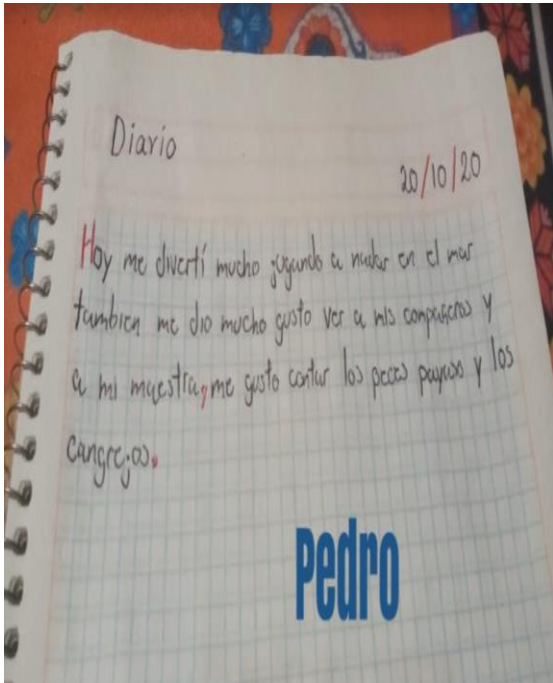 Diario
20/10/20
Hoy me divertí mucho jugando a nadar en el mar
tambien me dio mucho gusto ver a mis compañeros y
a mi maestra, me gusto contar los peces payaso y los
cangrejos.
Pedro